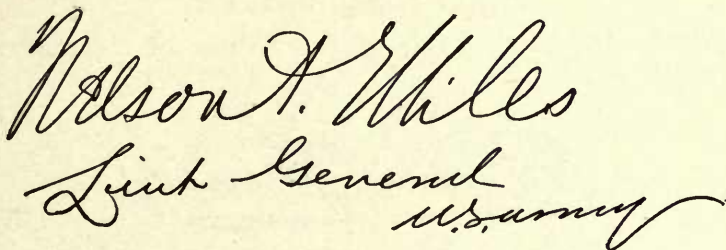 Nelson A. Miles
Lieut General
U.S. Army